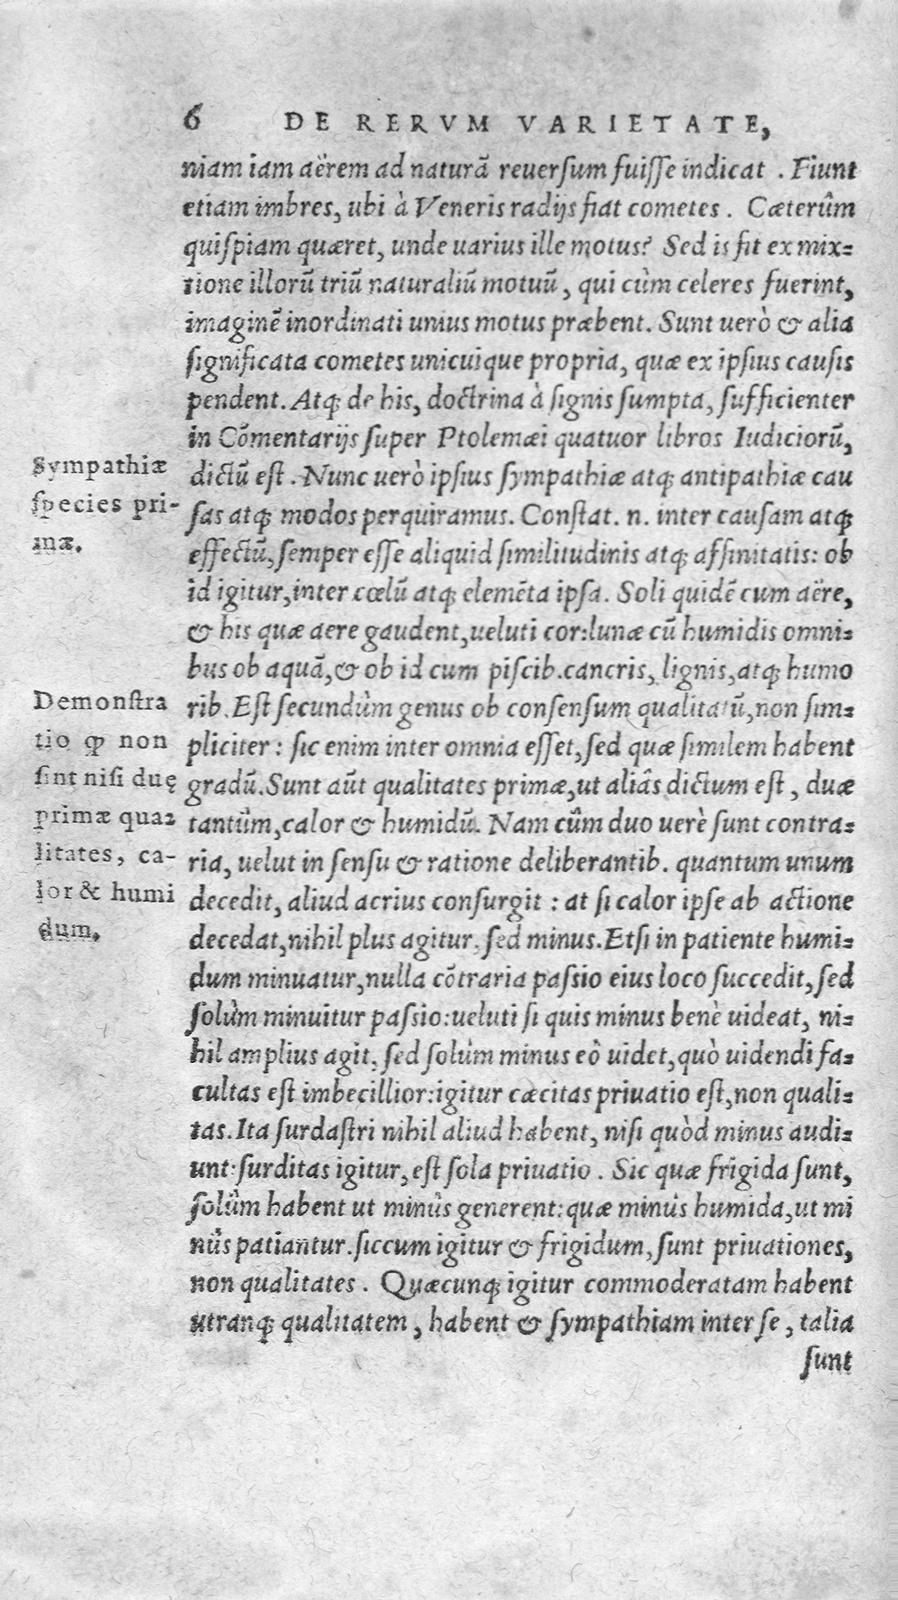 6 DE RERVM VARIETATE,
niam iam aërem ad naturã reuersum fuisse indicat . Fiunt
etiam imbres, ubi à Veneris radijs fiat cometes . Cæterûm
quispiam quæret, unde uarius ille motus? Sed is fit ex mix=
tione illorũ triũ naturaliũ motuũ, qui cùm celeres fuerint,
imaginẽ inordinati unius motus præbent. Sunt uerò & alia
significata cometes unicuique propria, quæ ex ipsius causis
pendent. Atq; de his, doctrina à signis sumpta, sufficienter
in Cõmentarijs super Ptolemæi quatuor libros Iudiciorũ,
dictũ est . Nunc uerò ipsius sympathiæ atq; antipathiæ cau
sas atq; modos perquiramus. Constat. n. inter causam atq;
effectũ, semper esse aliquid similitudinis atq; affinitatis: ob
id igitur, inter cœlũ atq; elemẽta ipsa. Soli quidẽ cum aëre,
& his quæ aere gaudent, ueluti cor: lunæ cũ humidis omni=
bus ob aquã, & ob id cum piscib. cancris, lignis, atq; humo
rib. Est secundùm genus ob consensum qualitatũ, non sim=
pliciter : sic enim inter omnia esset, sed quæ similem habent
gradũ. Sunt aũt qualitates primæ, ut aliâs dictum est, duæ
tantùm, calor & humidũ. Nam cûm duo uerè sunt contra=
ria, uelut in sensu & ratione deliberantib. quantum unum
decedit, aliud acrius consurgit : at si calor ipse ab actione
decedat, nihil plus agitur, sed minus. Etsi in patiente humi=
dum minuatur, nulla cõtraria passio eius loco succedit, sed
solùm minuitur passio: ueluti si quis minus benè uideat, ni=
hil amplius agit, sed solùm minus eô uidet, quò uidendi fa=
cultas est imbecillior: igitur cæcitas priuatio est, non quali=
tas. Ita surdastri nihil aliud habent, nisi quòd minus audi=
unt: surditas igitur, est sola priuatio . Sic quæ frigida sunt,
solûm habent ut minùs generent: quæ minùs humida, ut mi
nùs patiantur. siccum igitur & frigidum, sunt priuationes,
non qualitates . Quæcunq; igitur commoderatam habent
utranq; qualitatem, habent & sympathiam inter se, talia
sunt
Sympathiæ
species pri-
mæ.
Demonstra
tio ꝙ non
sint nisi duę
primæ qua=
litates, ca-
lor & humi
dum.